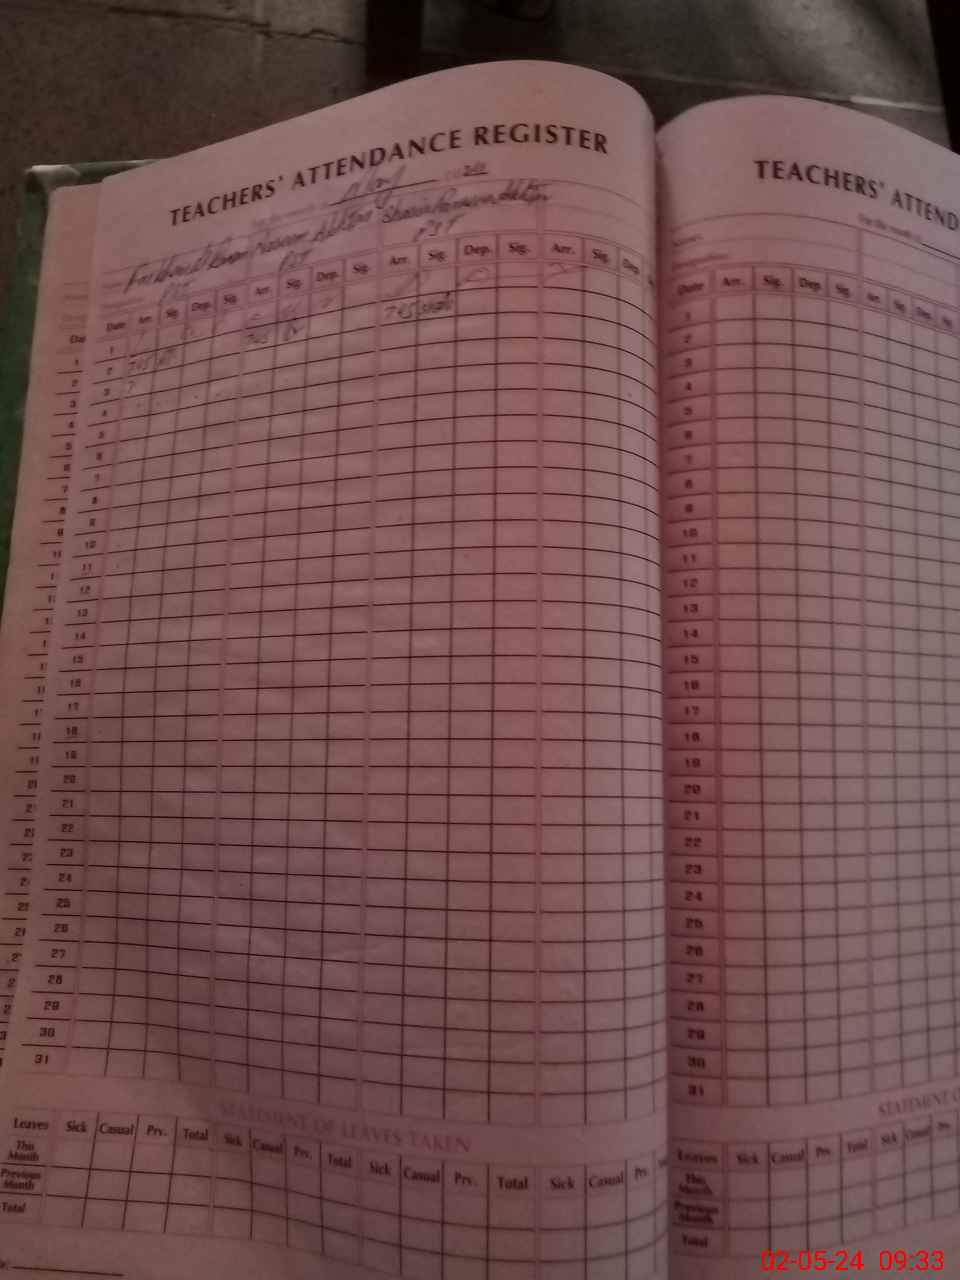 TEACHERS' ATTENDANCE REGISTER
For the month of May
PST PST PST
Date Arr. Sig. Dep. Sig. Arr. Sig. Dep. Sig. Arr. Sig. Dep. Sig. Arr. Sig. Dep.
1
2 745 745 745
3
4
5
6
7
8
9
10
11
12
13
14
15
16
17
18
19
20
21
22
23
24
25
26
27
28
29
30
31
STATEMENT OF LEAVES TAKEN
Leaves Sick Casual Prv. Total Sick Casual Prv. Total Sick Casual Prv. Total Sick Casual Prv.
This Month
Previous Month
Total
TEACHERS' ATTEND
For the month of
Date Arr. Sig. Dep. Sig. Arr. Sig. Dep. Sig.
1
2
3
4
5
6
7
8
9
10
11
12
13
14
15
16
17
18
19
20
21
22
23
24
25
26
27
28
29
30
31
STATEMENT O
Leaves Sick Casual Prv. Total Sick Casual Prv.
This Month
Previous Month
Total
02-05-24 09:33